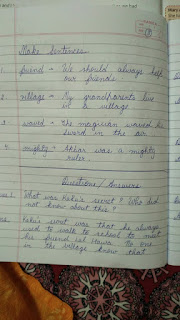 Make Sentences
1. friend - We should always help
our friends
2. village - My grandparents live
in a village
3. waved - The magician waved his
sword in the air
4. mighty - Akbar was a mighty
ruler.
Questions / Answers
Ques1. What was Keku's secret? Who did
not know about this?
Ans. secret was that he always
used to walk to school to meet
his friend No one
in the village knew that